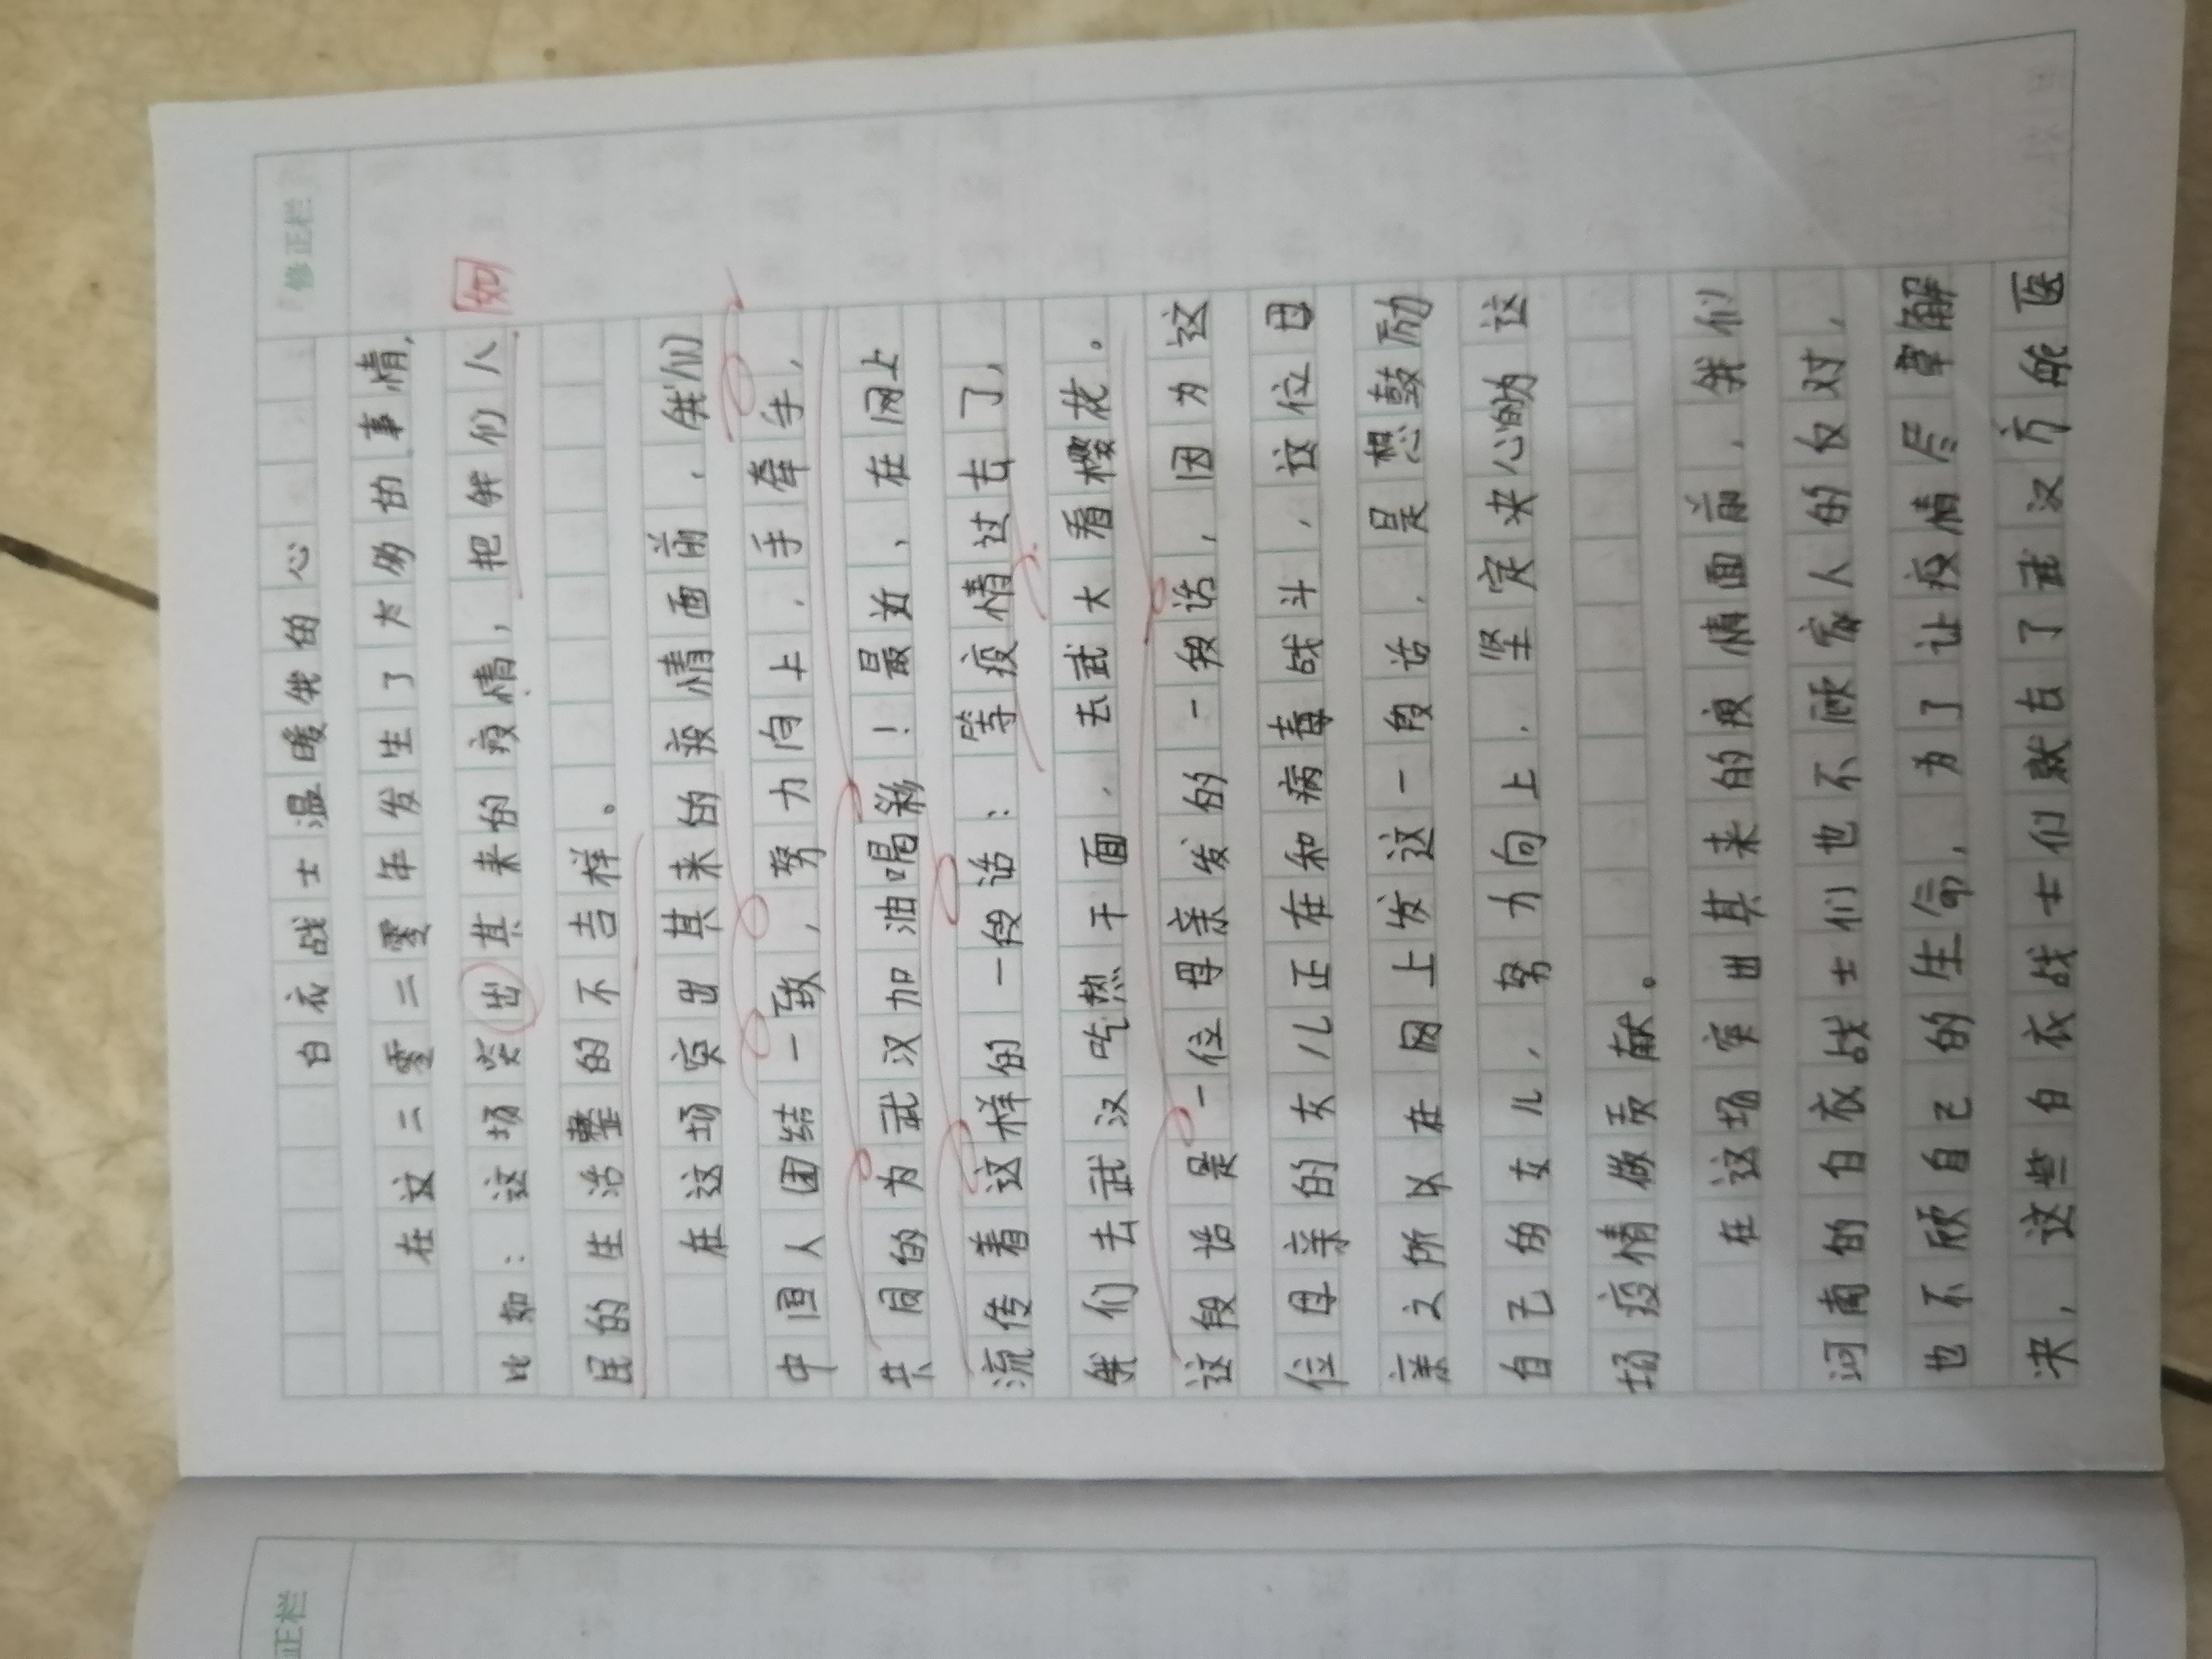 修正栏
白衣战士温暖我的心
在这二零二零年发生了太多的事情,
比如：这场突出其来的疫情，把我们人
如
民的生活整的不吉样。
在这场突出其来的疫情面前，我们
中国人团结一致，努力向上，手牵手，
共同的为武汉加油喝彩！最近，在网上
流传着这样的一段话：等疫情过去了，
我们去武汉吃热干面，去武大看樱花。
这段话是一位母亲发的一段话，因为这
位母亲的女儿正在和病毒战斗，这位母
亲之所以在网上发这一段话，是想鼓励
自己的女儿，努力向上，坚定决心的为这
场疫情做贡献。
在这场突出其来的疫情面前，我们
河南的白衣战士们也不顾家人的反对，
也不顾自己的生命，为了让疫情尽早解
决，这些白衣战士们就在了武汉方舱医
正栏